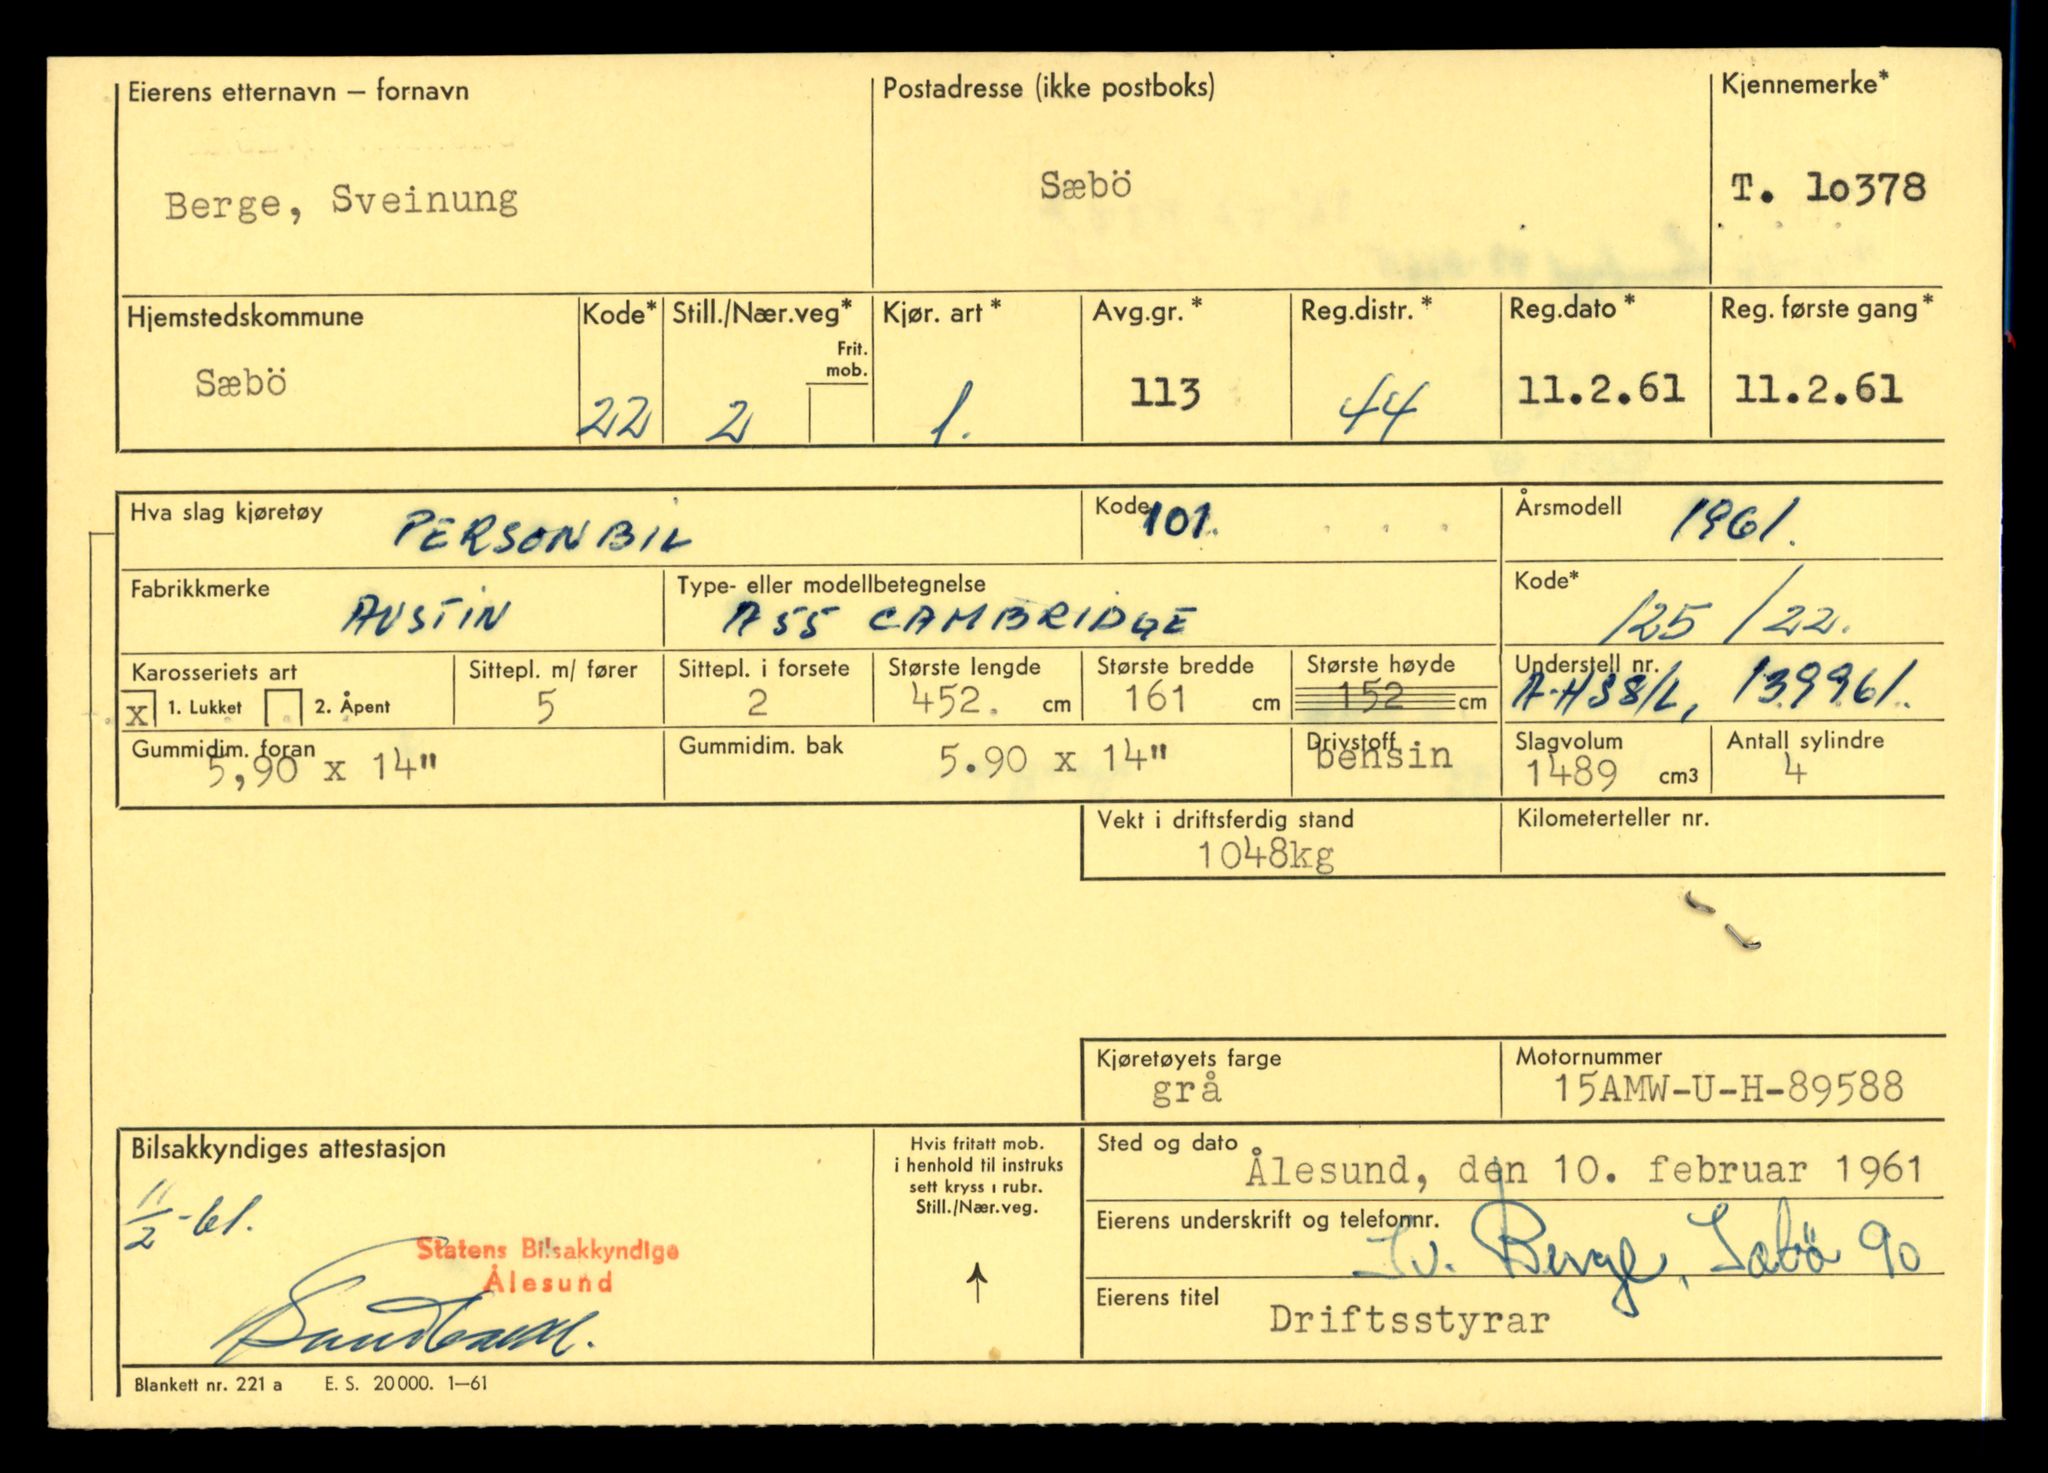 Eierens etternavn – fornavn
Berge, Sveinung
Postadresse (ikke postboks)
Sæbö
Kjennemerke*
T. 10378
Hjemstedskommune
Sæbö
Kode*
22
Still./Nær.veg*
Frit. mob.
2
Kjør. art*
1.
Avg.gr.*
113
Reg.distr.*
44
Reg.dato*
11.2.61
Reg. første gang*
11.2.61
Hva slag kjøretøy
PERSONBIL
Kode
101.
Årsmodell
1961.
Fabrikkmerke
AUSTIN
Type- eller modellbetegnelse
A55 CAMBRIDGE
Kode*
125/122.
Karosseriets art
x 1. Lukket 2. Åpent
Sittepl. m/ fører
5
Sittepl. i forsete
2
Største lengde
452. cm
Største bredde
161 cm
Største høyde
152 cm
Understell nr.
A-HS8/L, 139961.
Gummidim. foran
5,90 x 14"
Gummidim. bak
5.90 x 14"
Drivstoff
bensin
Slagvolum
1489 cm3
Antall sylindre
4
Vekt i driftsferdig stand
1048kg
Kilometerteller nr.
Kjøretøyets farge
grå
Motornummer
15AMW-U-H-89588
Bilsakkyndiges attestasjon
11/2-61.
Statens Bilsakkyndige
Ålesund
Hvis fritatt mob.
i henhold til instruks
sett kryss i rubr.
Still./Nær.veg.
Sted og dato
Ålesund, den 10. februar 1961
Eierens underskrift og telefonnr.
Sv. Berge, Sæbö 90
Eierens titel
Driftsstyrar
Blankett nr. 221 a E. S. 20000. 1–61